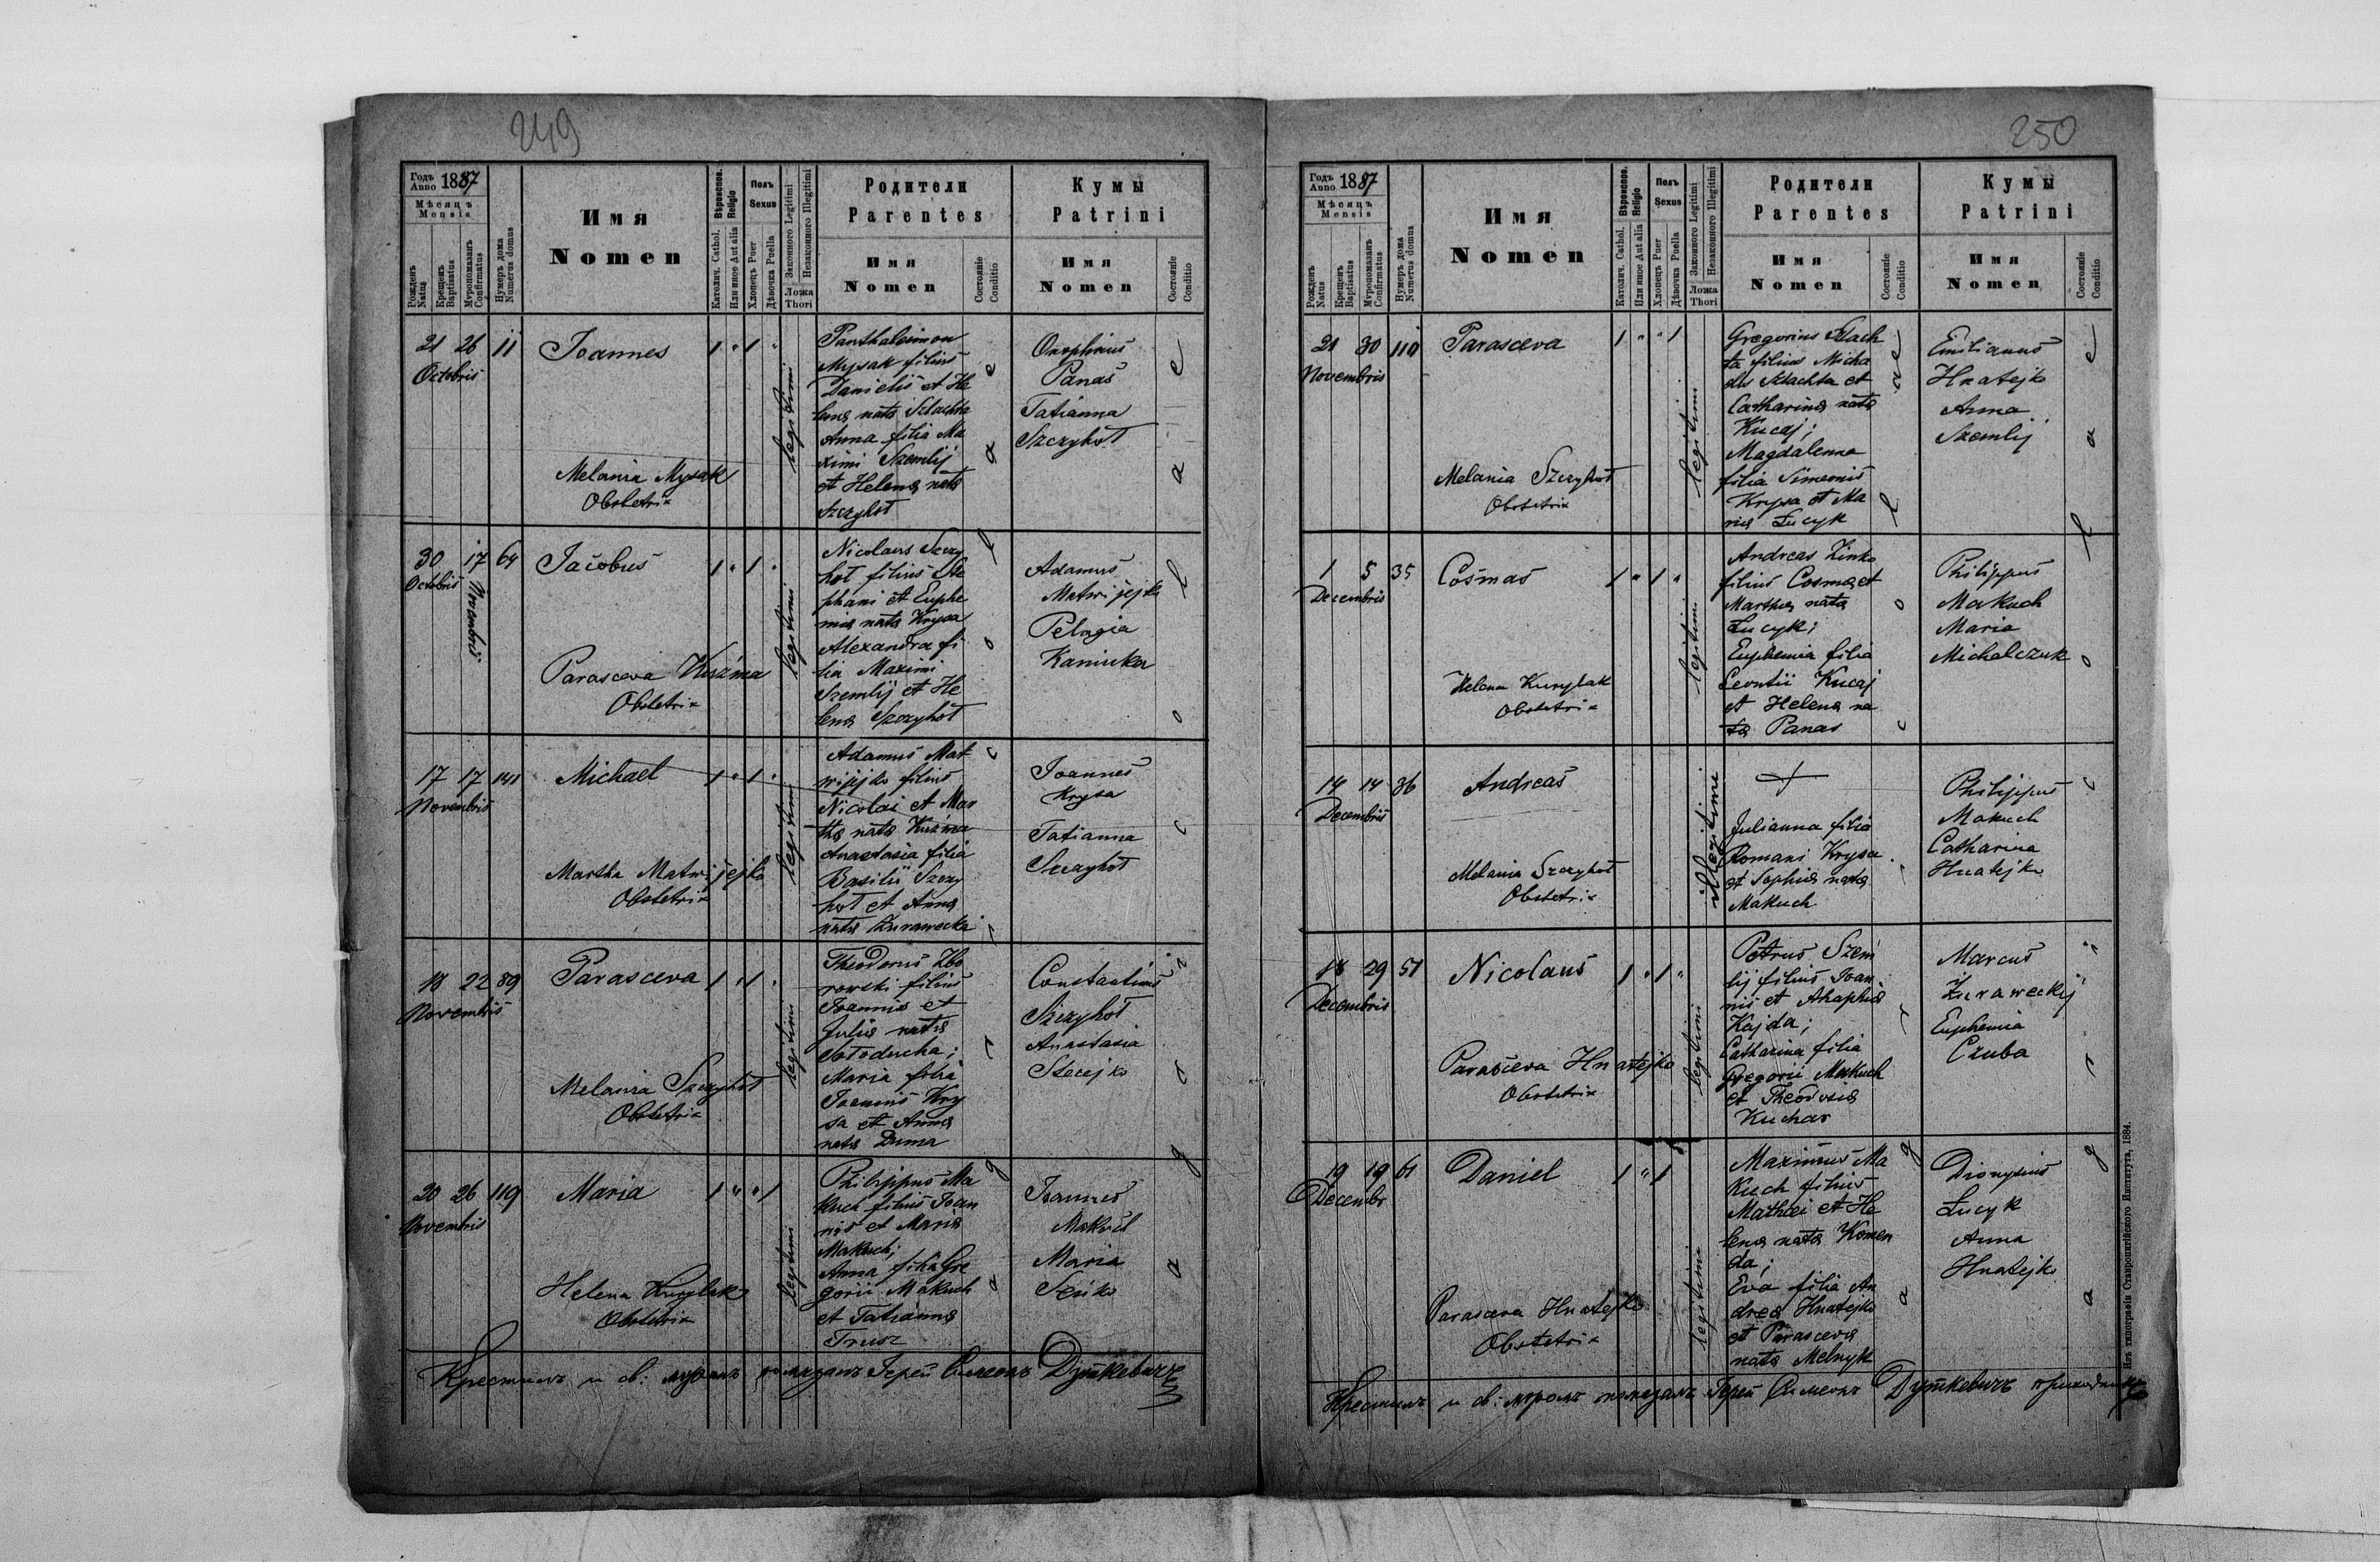 249
Годъ Anno 1887
Мѣсяцъ
Mensis
Рожденъ Natus
Крещенъ Baptisatus
Муропомазанъ Confirmatus
Нумеръ дома Numerus domus
Имя
Nomen
Вѣроиспов. Religio
Католич. Cathol.
Или иное Aut alia
Полъ
Sexus
Хлопецъ Puer
Дѣвочка Puella
Законного Legitimi
Незаконного Illegitimi
Ложа
Thori
Родители
Parentes
Имя
Nomen
Состояніе
Conditio
Кумы
Patrini
Имя
Nomen
Состояніе
Conditio
21 26 11
Octobris
Joannes
1 " 1 "
legitimi
Melania Mysak
Obstetrix
Panthaleimon
Mysak filius
Danielis et He
lenæ natæ Szlachta
Anna filia Ma
ximi Szemlij
et Helenæ natæ
Szczyhot
Onophrius
Panas
Tatianna
Szczyhot
30 17 64
Octobris
Novembris
Jacobus
1 " 1 "
legitimi
Parasceva Kuźma
Obstetrix
Nicolaus Szczy
hot filius Ste
phani et Euphe
miæ natæ Krysa
Alexandra fi
lia Maximi
Szemlij et He
lenæ Szczyhot
Adamus
Matwijejko
Pelagia
Kaniuka
17 17 141
Novembris
Michael
1 " 1 "
legitimi
Martha Matwijejko
Obstetrix
Adamus Mat
wijejko filius
Nicolai et Mar
thæ natæ Kuźma
Anastasia filia
Basilii Szczy
hot et Annæ
natæ Żurawecka
Joannes
Krysa
Tatianna
Szczyhot
18 22 89
Novembris
Parasceva
1 " 1 "
legitimi
Melania Szczyhot
Obstetrix
Theodorus Zbo
rowski filius
Joannis et
Juliæ natæ
Sołoducha;
Maria filia
Joannis Kry
sa et Annæ
natæ Duma
Constantinus
Szczyhot
Anastasia
Stecejko
20 26 119
Novembris
Maria
1 " " 1
legitimi
Helena Kurylak
Obstetrix
Philippus Ma
kuch filius Joan
nis et Mariæ
Makuch;
Anna filia Gre
gorii Makuch
et Tatiannæ
Trusz
Joannes
Makuch
Maria
Seńko
a g r i c o l a e
a g r i c o l a e
Крестилъ и св: муромъ помазалъ Іерей Симеонъ Дуткевичъ
250
Годъ Anno 1887
Мѣсяцъ
Mensis
Рожденъ Natus
Крещенъ Baptisatus
Муропомазанъ Confirmatus
Нумеръ дома Numerus domus
Имя
Nomen
Вѣроиспов. Religio
Католич. Cathol.
Или иное Aut alia
Полъ
Sexus
Хлопецъ Puer
Дѣвочка Puella
Законного Legitimi
Незаконного Illegitimi
Ложа
Thori
Родители
Parentes
Имя
Nomen
Состояніе
Conditio
Кумы
Patrini
Имя
Nomen
Состояніе
Conditio
21 30 110
Novembris
Parasceva
1 " " 1
legitimi
Melania Szczyhot
Obstetrix
Gregorius Szlach
ta filius Micha
elis Szlachta et
Catharinæ natæ
Kucaj;
Magdalenna
filia Simeonis
Krysa et Ma
riæ Łucyk
Emilianus
Hnatejko
Anna
Szemlij
1 5 35
Decembris
Cosmas
1 " 1 "
legitimi
Helena Kurylak
Obstetrix
Andreas Zinko
filius Cosmæ et
Marthæ natæ
Łucyk;
Euphemia filia
Leontii Kucaj
et Helenæ na
tæ Panas
Philippus
Makuch
Maria
Michalczuk
14 14 36
Decembris
Andreas
illegitimi
Melania Szczyhot
Obstetrix
Julianna filia
Romani Krysa
et Sophiæ natæ
Makuch
Philippus
Makuch
Catharina
Hnatejko
18 29 51
Decembris
Nicolaus
1 " 1 "
legitimi
Parasceva Hnatejko
Obstetrix
Petrus Szem
lij filius Joan
nis et Ahaphiæ
Kajda;
Catharina filia
Gregorii Makuch
et Theodosiæ
Kuchar
Marcus
Żuraweckij
Euphemia
Czuba
19 19 61
Decembr
Daniel
1 " 1
legitimi
Parasceva Hnatejko
Obstetrix
Maximus Ma
kuch filius
Mathæi et He
lenæ natæ Komen
da;
Eva filia An
dreæ Hnatejko
et Parascevæ
natæ Melnyk
Dionysius
Łucyk
Anna
Hnatejko
a g r i c o l a e
a g r i c o l a e
Крестилъ и св: муромъ помазалъ Іерей Симеонъ Дуткевичъ приходникъ
Изъ типографіи Ставропигійского Института, 1884.